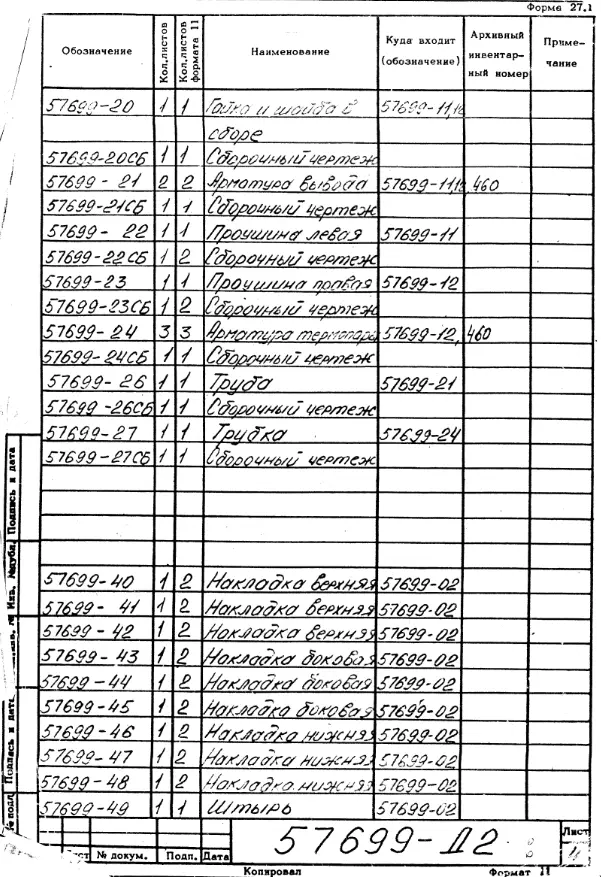 Форма 27.1
Обозначение Кол.листов Кол.листов формата 11 Наименование Куда входит (обозначение) Архивный инвентарный номер Приме-чание
57699-20 1 1 Гайка и шайба в 57699-11,12
сборе
57699-20СБ 1 1 Сборочный чертеж
57699-21 2 2 Арматура вывода 57699-11,12 460
57699-21СБ 1 1 Сборочный чертеж
57699-22 1 1 Проушина левая 57699-11
57699-22СБ 1 2 Сборочный чертеж
57699-23 1 1 Проушина правая 57699-12
57699-23СБ 1 2 Сборочный чертеж
57699-24 3 3 Арматура термопары 57699-12, 460
57699-24СБ 1 1 Сборочный чертеж
57699-26 1 1 Труба 57699-21
57699-26СБ 1 1 Сборочный чертеж
57699-27 1 1 Трубка 57699-24
57699-27СБ 1 1 Сборочный чертеж
57699-40 1 2 Накладка верхняя 57699-02
57699-41 1 2 Накладка верхняя 57699-02
57699-42 1 2 Накладка верхняя 57699-02
57699-43 1 2 Накладка боковая 57699-02
57699-44 1 2 Накладка боковая 57699-02
57699-45 1 2 Накладка боковая 57699-02
57699-46 1 2 Накладка нижняя 57699-02
57699-47 1 2 Накладка нижняя 57699-02
57699-48 1 2 Накладка нижняя 57699-02
57699-49 1 1 Штырь 57699-02
Подпись и дата
Инв. №дубл.
Подпись и дата
№ подл
№ докум. Подп. Дата
57699-Д2
Лист
4
Копировал Формат 11